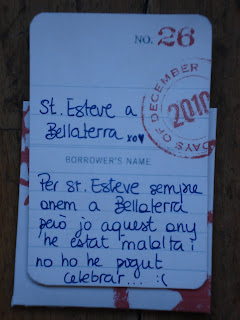 NO. 26
DAYS OF DECEMBER 2010
St. Esteve a
Bellaterra xoy
BORROWER'S NAME
Per st. Esteve sempre
anem a Bellaterra
però jo aquest any
he estat malalta i
no ho he pogut
celebrar... :(